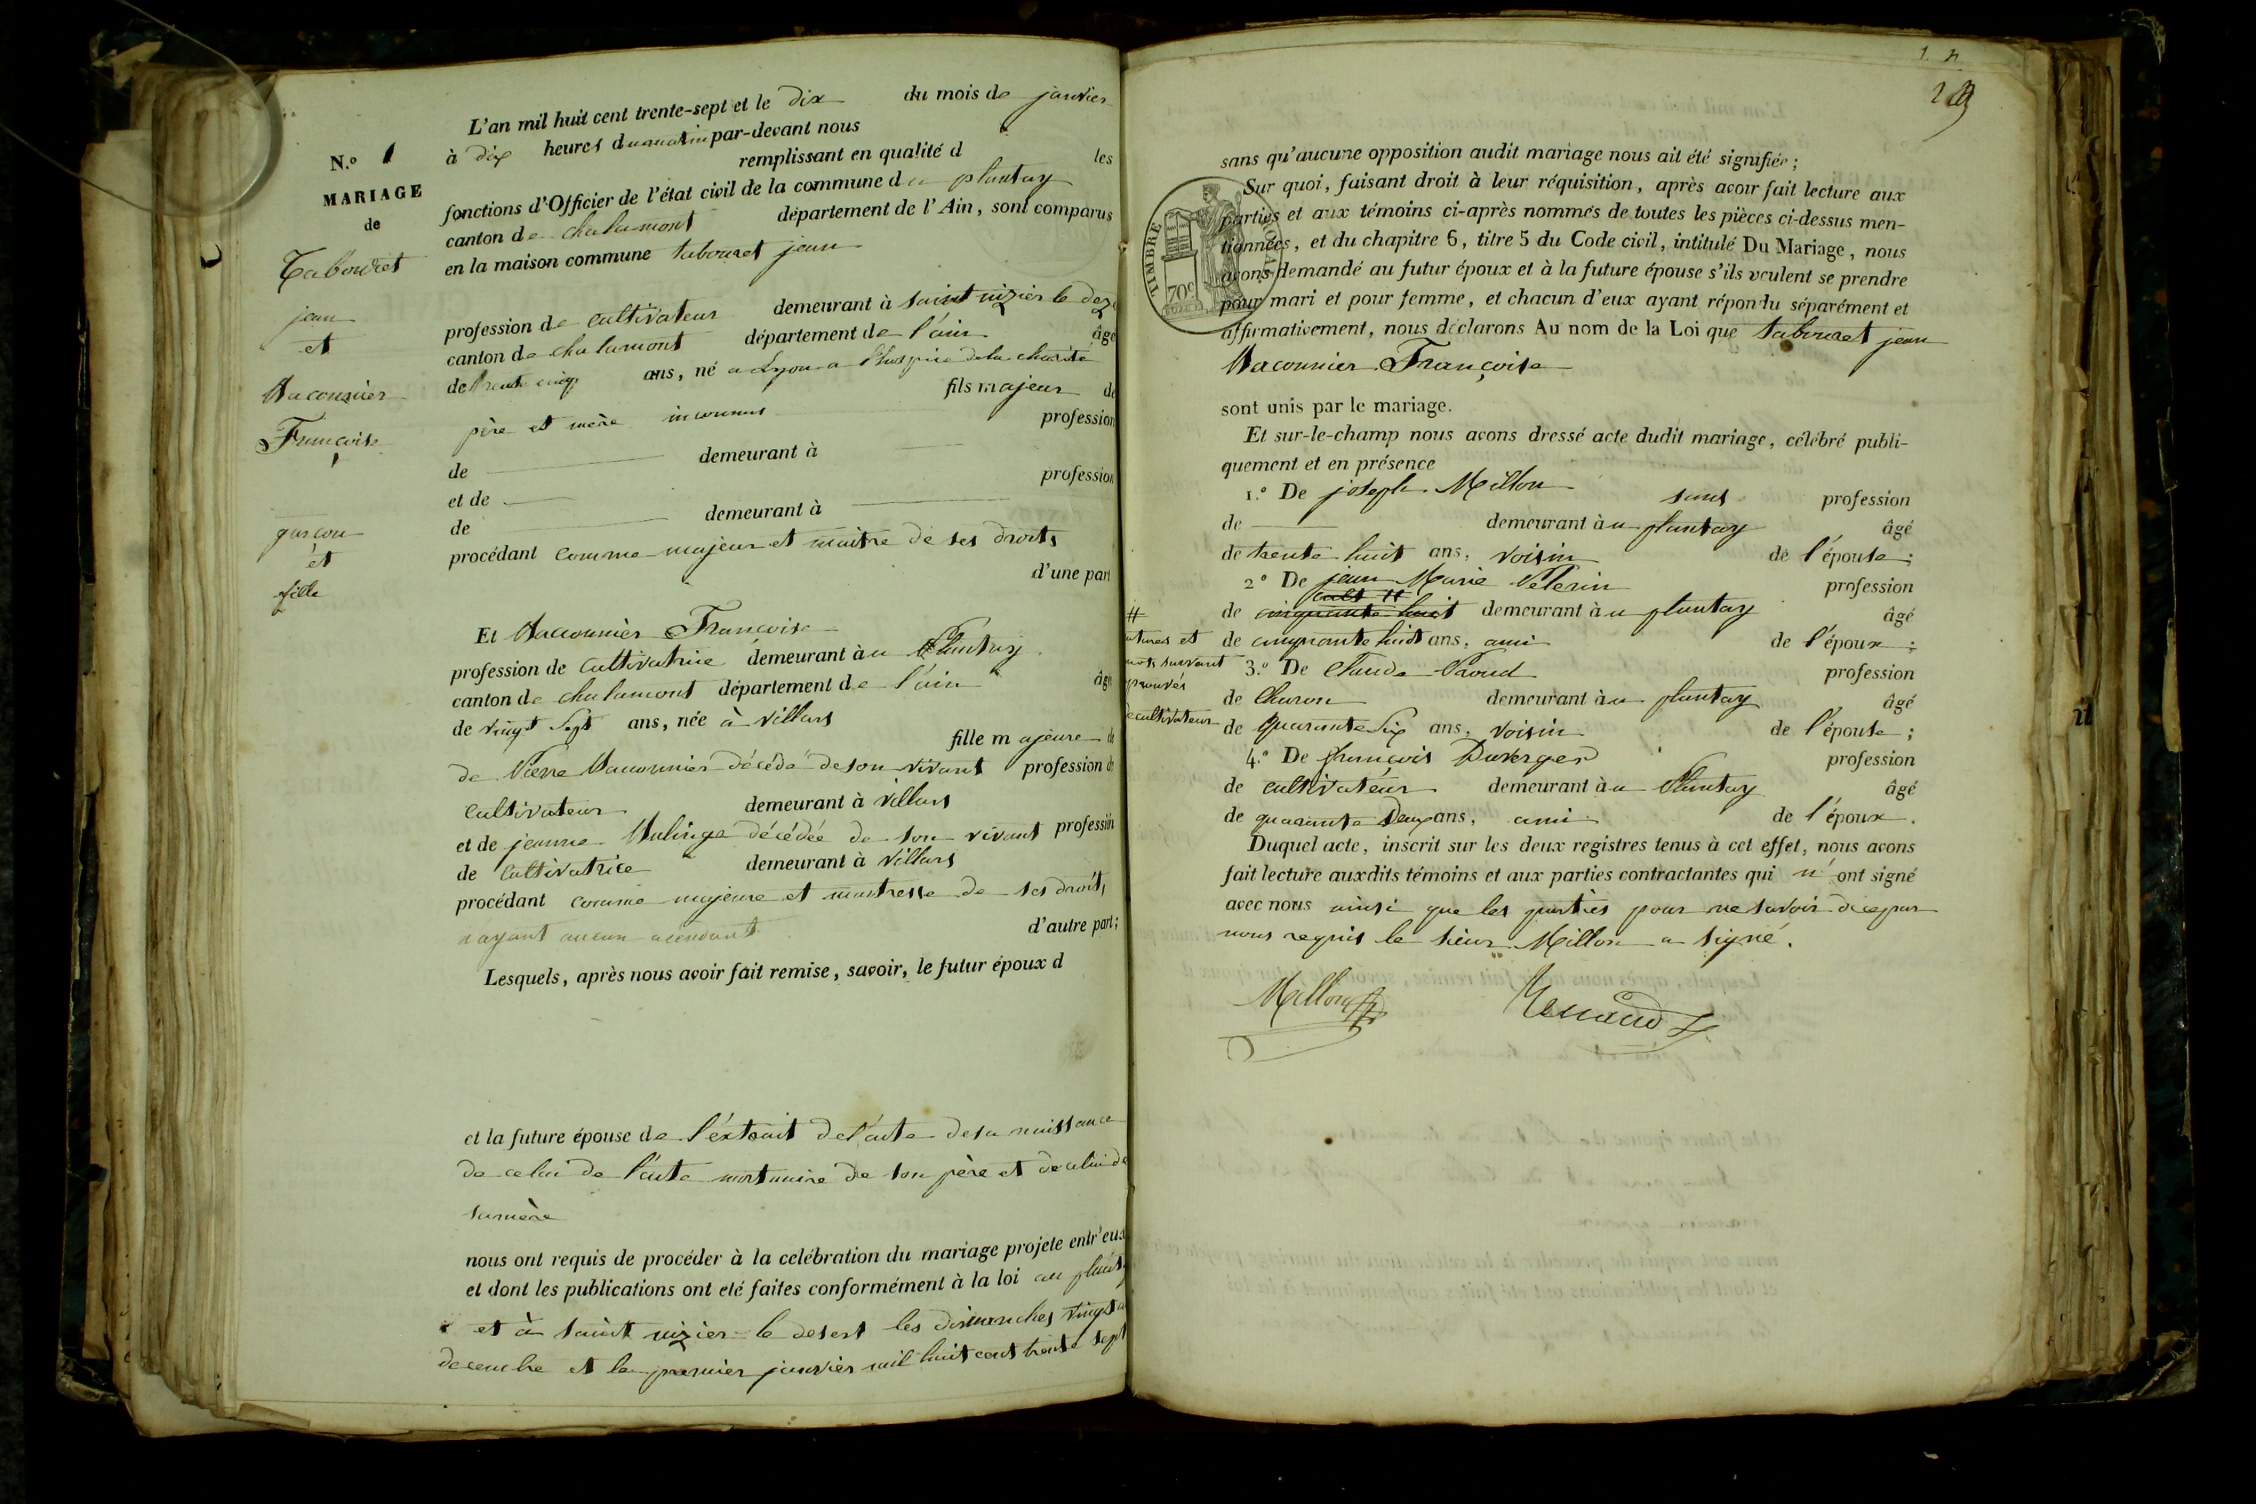 L'an mil huit cent trente-sept et le dix du mois de janvier
à dix heures du matin par-devant nous
remplissant en qualité d les
fonctions d'Officier de l'état civil de la commune du plantay
canton de chalamont département de l'Ain, sont comparus
en la maison commune tabouret jean
N.º 1
MARIAGE
de
Tabouret
jean
et
Vaconnier
Françoise
garçon
et
fille
profession de cultivateur demeurant à saint nizier le dez
canton de chalamont département de l'ain âgé
de trente cinq ans, né a Lyon a l'hospice de la charité
fils majeur de
père et mère inconnus profession
de demeurant à
et de profession
de demeurant à
procédant comme majeur et maitre de ses droits
d'une part
Et Vaconnier Françoise
profession de cultivatrice demeurant à u Plantay
canton de chalamont département de l'ain âgé
de vingt sept ans, née à villars
fille majeure de
de Pierre Vaconnier décédé de son vivant profession de
cultivateur demeurant à villars
et de jeanne décédée de son vivant profession
de cultivatrice demeurant à villars
procédant comme majeure et maitresse de ses droits
n'ayant aucun acendant d'autre part;
Lesquels, après nous avoir fait remise, savoir, le futur époux d
et la future épouse de l'extrait de l'acte de sa naissance
de celui de l'acte mortuaire de son père et de celui de
sa mère
nous ont requis de procéder à la celébration du mariage projeté entr'eux
et dont les publications ont eté faites conformément à la loi au plant
et à saint nizier le desert les dimanches vingt
decembre et le premier janvier mil huit cent trente sept
sans qu'aucune opposition audit mariage nous ait été signifiée;
Sur quoi, faisant droit à leur réquisition, après avoir fait lecture aux
parties et aux témoins ci-après nommés de toutes les pièces ci-dessus men-
tionnées, et du chapitre 6, titre 5 du Code civil, intitulé Du Mariage, nous
avons demandé au futur époux et à la future épouse s'ils veulent se prendre
pour mari et pour femme, et chacun d'eux ayant répondu séparément et
affirmativement, nous déclarons Au nom de la Loi que tabouret jean
Vaconnier Françoise
TIMBRE ROYAL
70c
sont unis par le mariage.
Et sur-le-champ nous avons dressé acte dudit mariage, célébré publi-
quement et en présence
1.º De joseph Millon sans profession
de demeurant à u plantay âgé
de trente huit ans, voisin de l'épouse;
2º De jean Marie Pelerin profession
de cinquante huit demeurant à u plantay âgé
de cinquante huit ans, ami de l'époux;
3.º De Claude Paoud profession
de Charon demeurant à u plantay âgé
de quarante six ans, voisin de l'épouse;
4.º De François Duverger profession
de cultivateur demeurant à u Plantay âgé
de quarante deux ans, ami de l'époux.
Duquel acte, inscrit sur les deux registres tenus à cet effet, nous avons
fait lecture auxdits témoins et aux parties contractantes qui n'ont signé
avec nous ainsi que les parties pour ne savoir de ce par
nous requis le sieur Millon a signé.
#
atures et
mots suivant
prouvés
de cultivateur
Millon Renaud